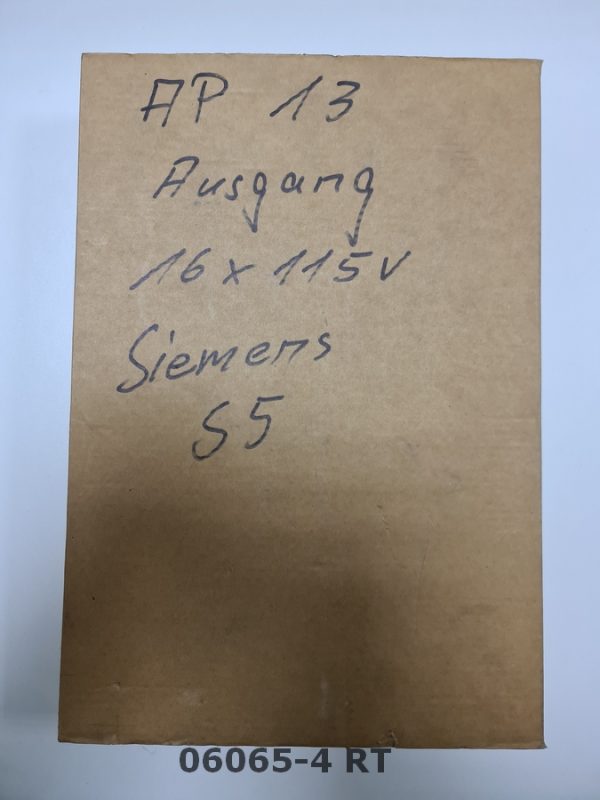 AP 13
Ausgang
16 x 115 V
Siemens
S5
06065-4 RT